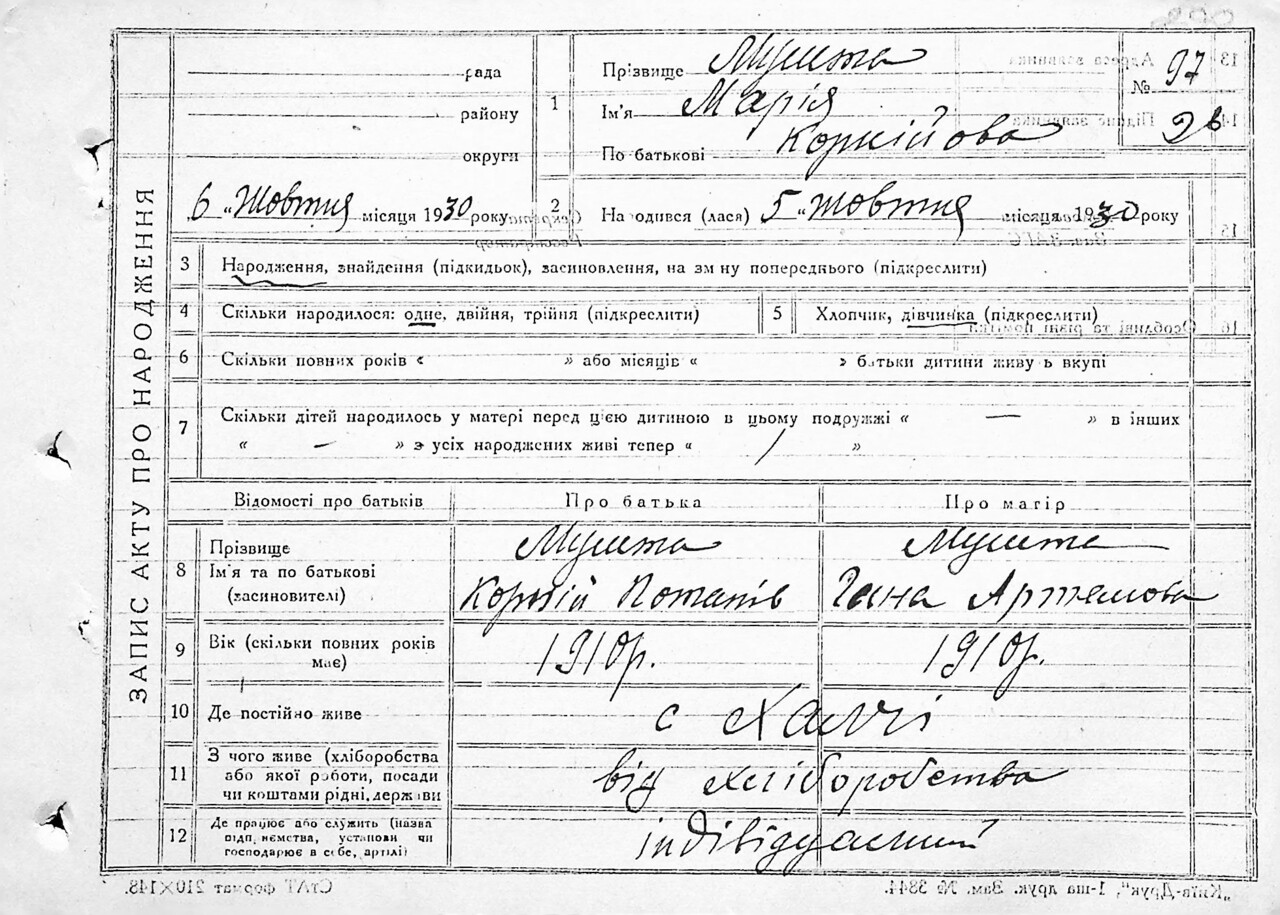 ЗАПИС АКТУ ПРО НАРОДЖЕННЯ
рада
району
округи
6 "Жовтня місяця 1930 року
1
Прізвище Мушта
Ім'я Марія
По батькові Корнійова
№ 97
2 Народився (лася) 5 "Жовтня місяця 1930 року
3 Народження, знайдення (підкидьок), засиновлення, на зм ну попереднього (підкреслити)
4 Скільки народилося: одне, двійня, трійня (підкреслити)
5 Хлопчик, дівчинка (підкреслити)
6 Скільки повних років « » або місяців « » батьки дитини живу ь вкупі
7 Скільки дітей народилось у матері перед цією дитиною в цьому подружжі « — » в інших
« — » з усіх народжених живі тепер « / »
Відомості про батьків Про батька Про матір
8 Прізвище Мушта Мушта
Ім'я та по батькові Корній Потапів Гана Артемова
(засиновителі)
9 Вік (скільки повних років 1910р. 1910р.
має)
10 Де постійно живе с Халчі
11 З чого живе (хліборобства
або якої роботи, посади від хліборобства
чи коштами рідні, держави
12 Де працює або служить (назва
підп иємства, установи чи індівідуаслний
господарює в себе, артілі)
13 Адреса заявника
14 Підпис заявника
15
Зав. ЗАГС
16 Особливі та різні помітки
СтАТ формат 210×148.
„Київ-Друк", 1-ша друк. Зам. № 3844.